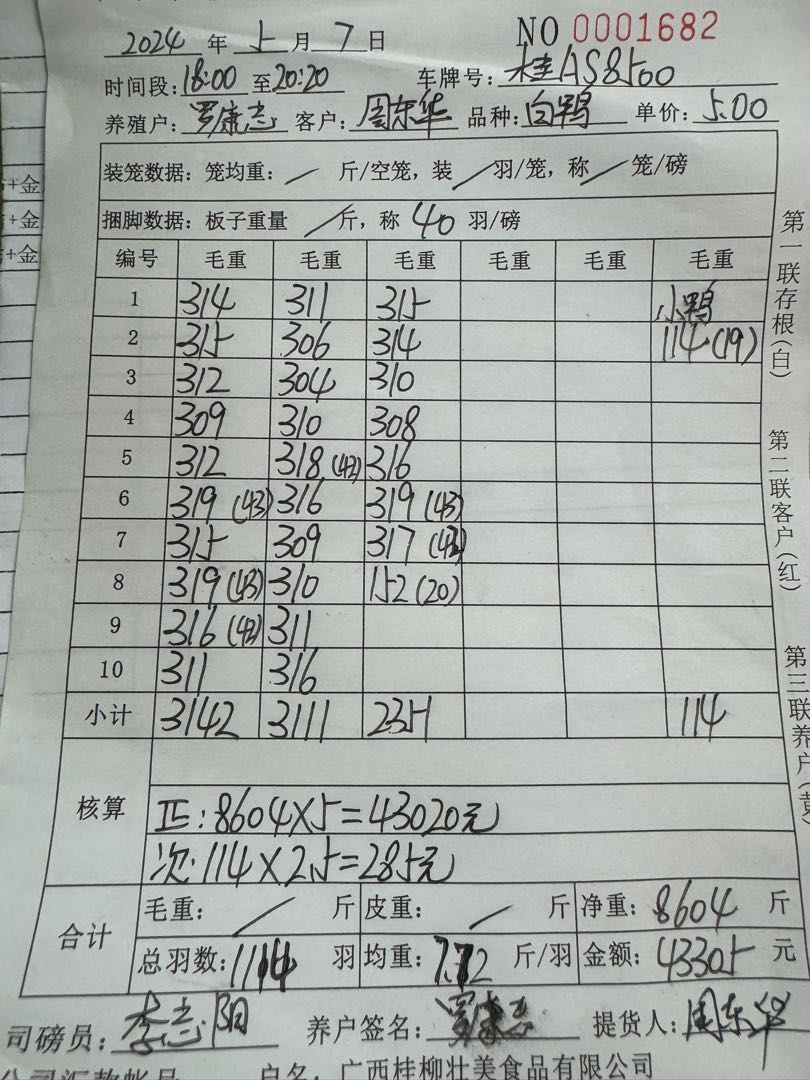 2024 年 5 月 7 日 NO 0001682
时间段: 18:00 至 20:20 车牌号: 桂AS8500
养殖户: 罗康志 客户: 周东华 品种: 白鸭 单价: 5.00
装笼数据: 笼均重: / 斤/空笼, 装 / 羽/笼, 称 / 笼/磅
捆脚数据: 板子重量 / 斤, 称 40 羽/磅
编号 毛重 毛重 毛重 毛重 毛重 毛重
1 314 311 315 小鸭
2 315 306 314 114(19)
3 312 304 310
4 309 310 308
5 312 318(42) 316
6 319(43) 316 319(43)
7 315 309 317(42)
8 319(43) 310 152(20)
9 316(42) 311
10 311 316
小计 3142 3111 2351 114
核算
正:8604×5=43020元
次:114×2.5=285元
合计
毛重: / 斤 皮重: / 斤 净重: 8604 斤
总羽数: 1114 羽 均重: 7.72 斤/羽 金额: 43305 元
司磅员: 李志阳 养户签名: 罗康志 提货人: 周东华
户名: 广西桂柳壮美食品有限公司
第一联存根(白)
第二联客户(红)
第三联养户(黄)
+金
+金
+金